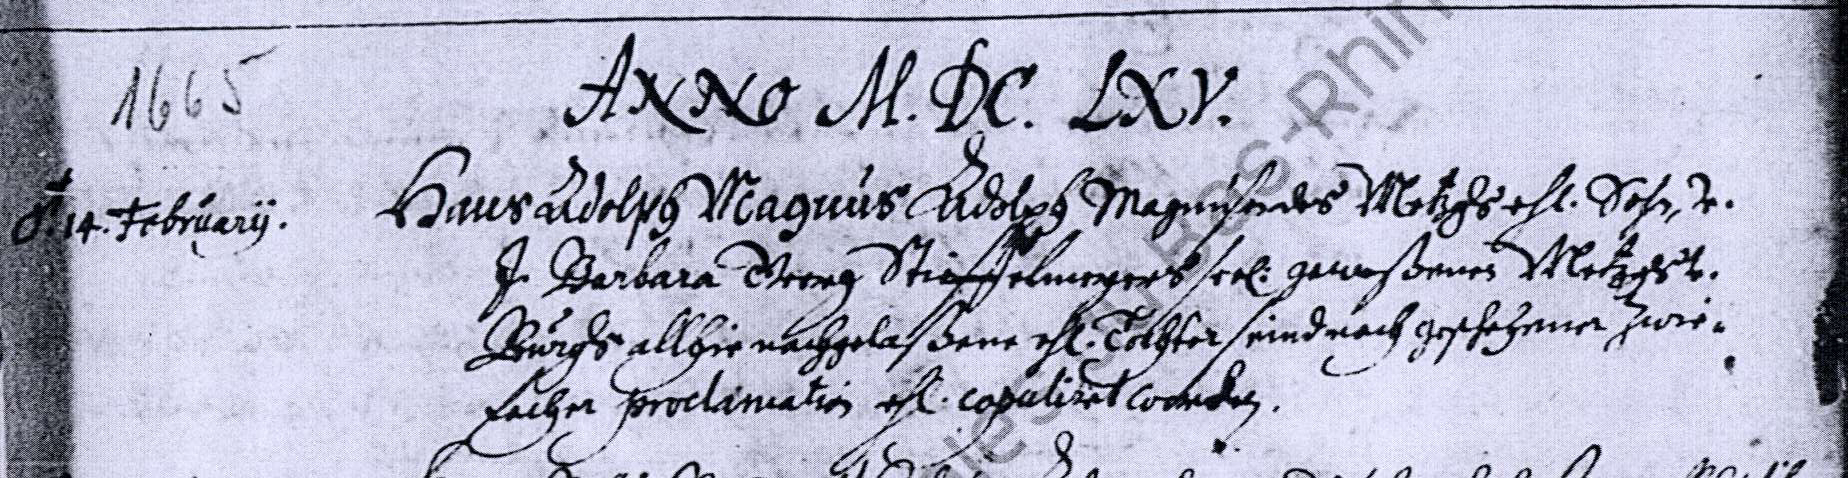 1665
ANNO M. DC. LXV.
d. 14. Februarij. Hans Adolph Magnus Adolph Metzgs ehl. Sohn, v.
J. Barbara Georg Stieffelmeyers seel: gewesßenen Metzgs v.
Burgs allhie nachgelasßene ehl. Tochter seind nach geschehener zwie-
facher proclamation ehl. copuliret worden.